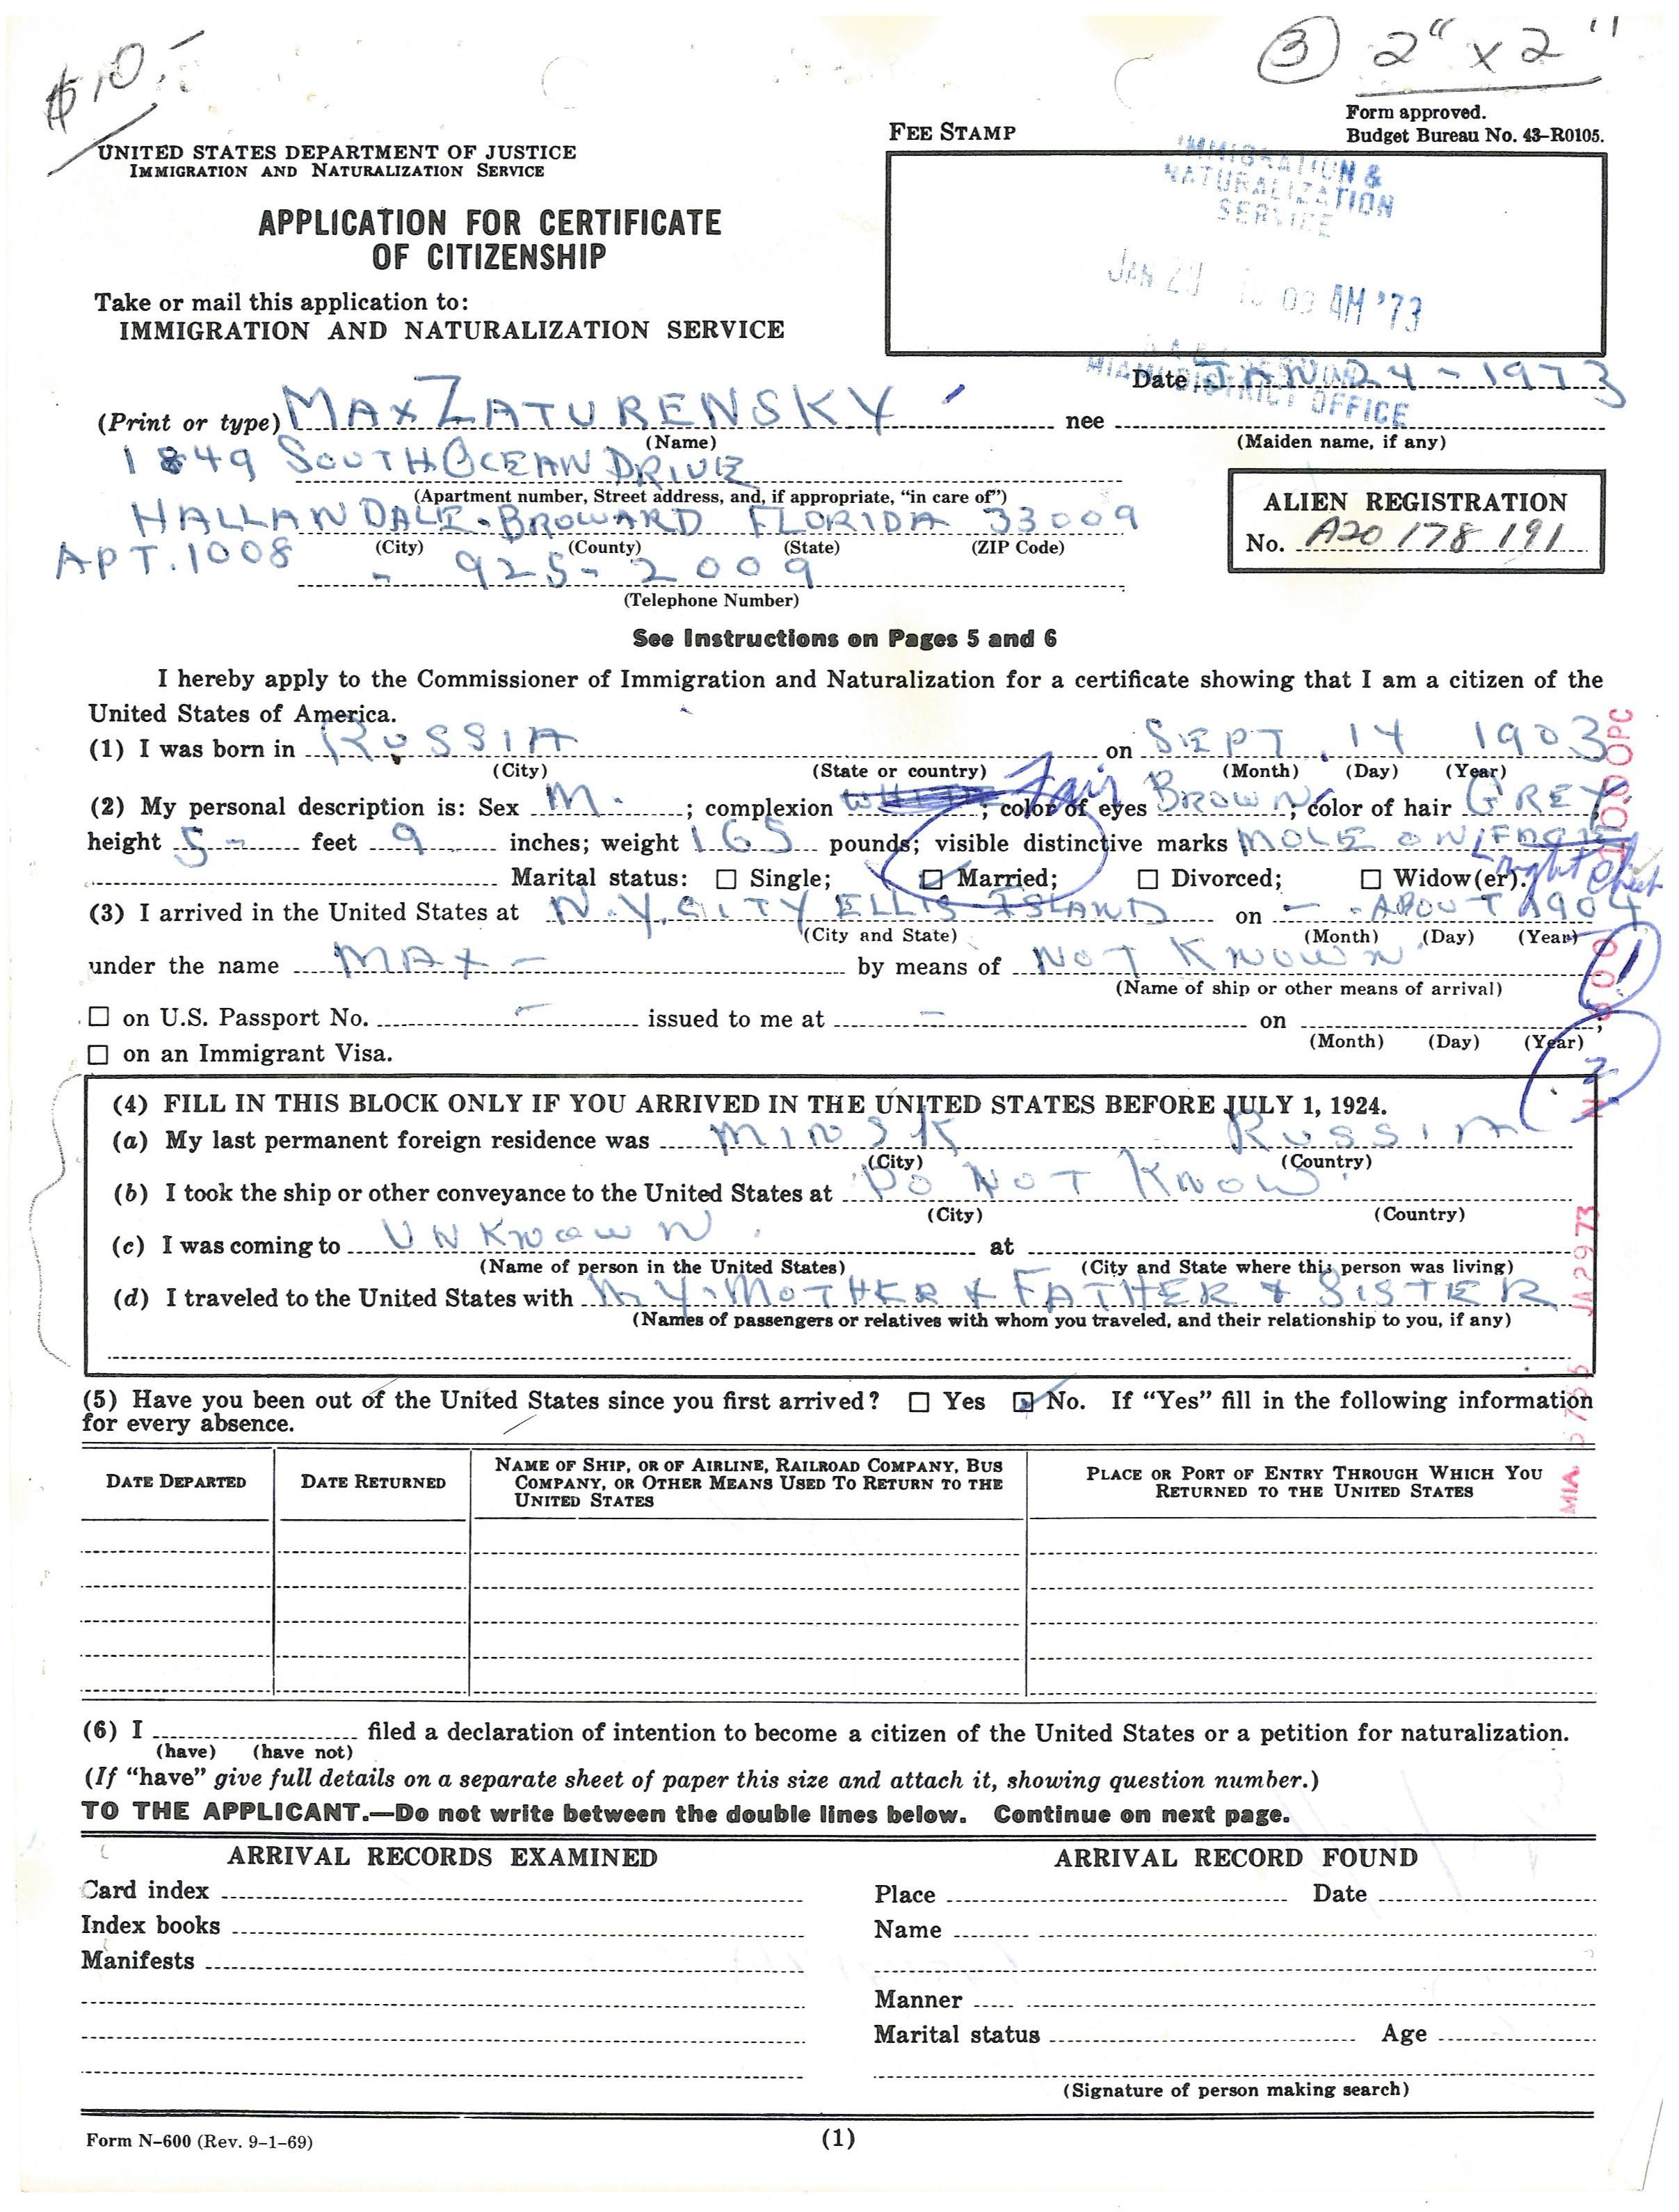 $10.-
③ 2" x 2"
Form approved.
Budget Bureau No. 43-R0105.
FEE STAMP
UNITED STATES DEPARTMENT OF JUSTICE
IMMIGRATION AND NATURALIZATION SERVICE
IMMIGRATION &
NATURALIZATION
SERVICE
APPLICATION FOR CERTIFICATE
OF CITIZENSHIP
JAN 00 AM '73
Take or mail this application to:
IMMIGRATION AND NATURALIZATION SERVICE
MIAMI DISTRICT OFFICE
Date JAN 24-1973
(Print or type) MAX ZATURENSKY nee
(Name) (Maiden name, if any)
1849 SOUTH OCEAN DRIVE
(Apartment number, Street address, and, if appropriate, "in care of")
ALIEN REGISTRATION
No. A20 178 191
HALLANDALE. BROWARD FLORIDA 33009
APT. 1008 (City) (County) (State) (ZIP Code)
- 925-2009
(Telephone Number)
See Instructions on Pages 5 and 6
I hereby apply to the Commissioner of Immigration and Naturalization for a certificate showing that I am a citizen of the
United States of America.
(1) I was born in RUSSIA on SEPT. 14 1903
(City) (State or country) (Month) (Day) (Year)
Fair
(2) My personal description is: Sex M. ; complexion WHITE ; color of eyes BROWN; color of hair GREY,
height 5- feet 9 inches; weight 165 pounds; visible distinctive marks MOLE ON
right cheek
Marital status: ☐ Single; ☐ Married; ☐ Divorced; ☐ Widow(er).
(3) I arrived in the United States at N.Y. CITY ELLIS ISLAND on - - ABOUT 1904
(City and State) (Month) (Day) (Year)
under the name MAX - by means of NOT KNOWN
(Name of ship or other means of arrival)
1
☐ on U.S. Passport No. - issued to me at - on ;
(Month) (Day) (Year)
☐ on an Immigrant Visa.
2
(4) FILL IN THIS BLOCK ONLY IF YOU ARRIVED IN THE UNITED STATES BEFORE JULY 1, 1924.
(a) My last permanent foreign residence was MINSK RUSSIA
(City) (Country)
(b) I took the ship or other conveyance to the United States at DO NOT KNOW.
(City) (Country)
(c) I was coming to UNKNOWN. at
(Name of person in the United States) (City and State where this person was living)
(d) I traveled to the United States with MY-MOTHER & FATHER & SISTER
(Names of passengers or relatives with whom you traveled, and their relationship to you, if any)
(5) Have you been out of the United States since you first arrived? ☐ Yes ☑ No. If "Yes" fill in the following information
for every absence.
DATE DEPARTED
DATE RETURNED
NAME OF SHIP, OR OF AIRLINE, RAILROAD COMPANY, BUS
COMPANY, OR OTHER MEANS USED TO RETURN TO THE
UNITED STATES
PLACE OR PORT OF ENTRY THROUGH WHICH YOU
RETURNED TO THE UNITED STATES
MIA. JA 29 73
(6) I filed a declaration of intention to become a citizen of the United States or a petition for naturalization.
(have) (have not)
(If "have" give full details on a separate sheet of paper this size and attach it, showing question number.)
TO THE APPLICANT.—Do not write between the double lines below. Continue on next page.
ARRIVAL RECORDS EXAMINED
Card index
Index books
Manifests
ARRIVAL RECORD FOUND
Place Date
Name
Manner
Marital status Age
(Signature of person making search)
Form N-600 (Rev. 9-1-69)
(1)